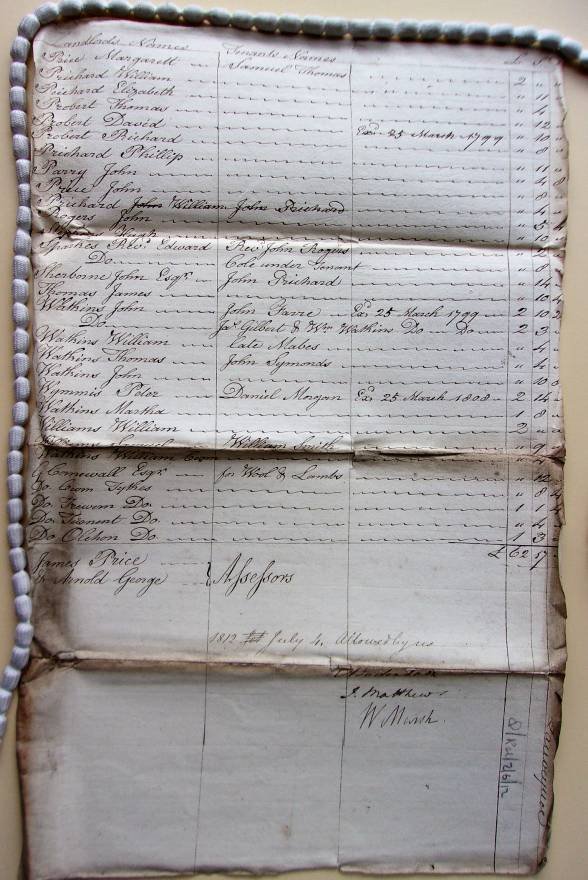 Landlords Names Tenants Names £ s
Price Margarett Samuel Thomas
Prichard William 2 " "
Prichard Elizabeth " 11
Probert Thomas " 4
Probert David " 12
Probert Richard Exd 25 March 1799 " 10
Prichard Phillip " 8
Parry John " 11
Price John " 4
Prichard John William John Prichard " 8
Rogers John " 4
Hugh
Sparkes Revd Edward Revd John Rogers
Do Cole under Tenant " 8
Sherborne John Esqr John Prichard " 14
Thomas James " 10
Watkins John John Farre Exd 25 March 1799 2 10
Do Jas Gilbert & Wm Watkins Do Do 2 3
Watkins William late Mabes " 4
Watkins Thomas John Symonds " 4
Watkins John " 10
Wymmis Peter Daniel Morgan Exd 25 March 1808 2 14
Watkins Martha 1 8
Williams William 2 "
William Smith " 9
Watkins William
G Cornewall Esqr for Wool & Lambs " 12
Do Crom Tythes " 8
Do Trewern Do 1 1
Do Do " 4
Do Olchon Do 1 3
£ 62 5
James Price
& Arnold George } Assessors
1812 July 4. Allowed by us
J. Matthews
W Marsh
Q/REL/2/6/12